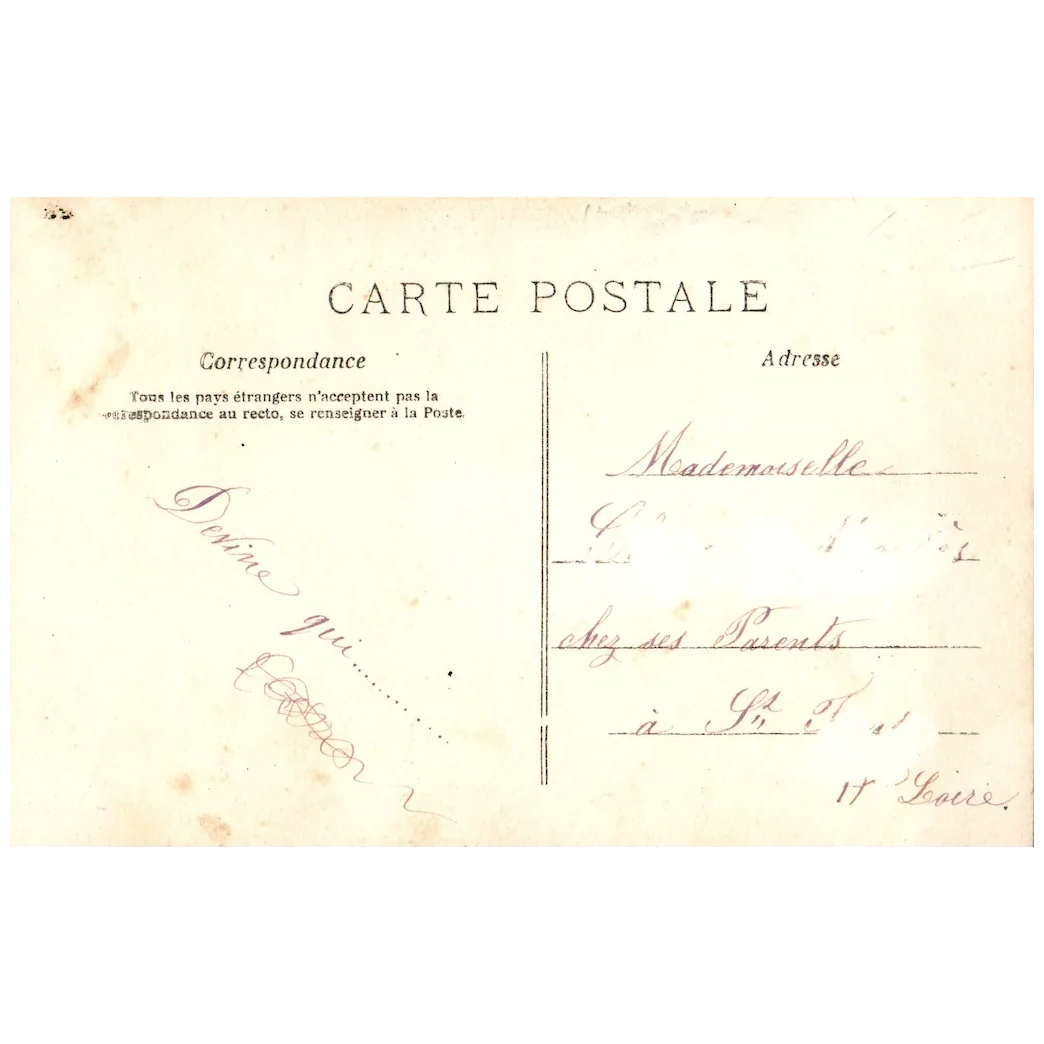 CARTE POSTALE
Correspondance
Tous les pays étrangers n'acceptent pas la
correspondance au recto, se renseigner à la Poste.
Devine qui...........
Adresse
Mademoiselle
chez ses Parents
à St
Loire.